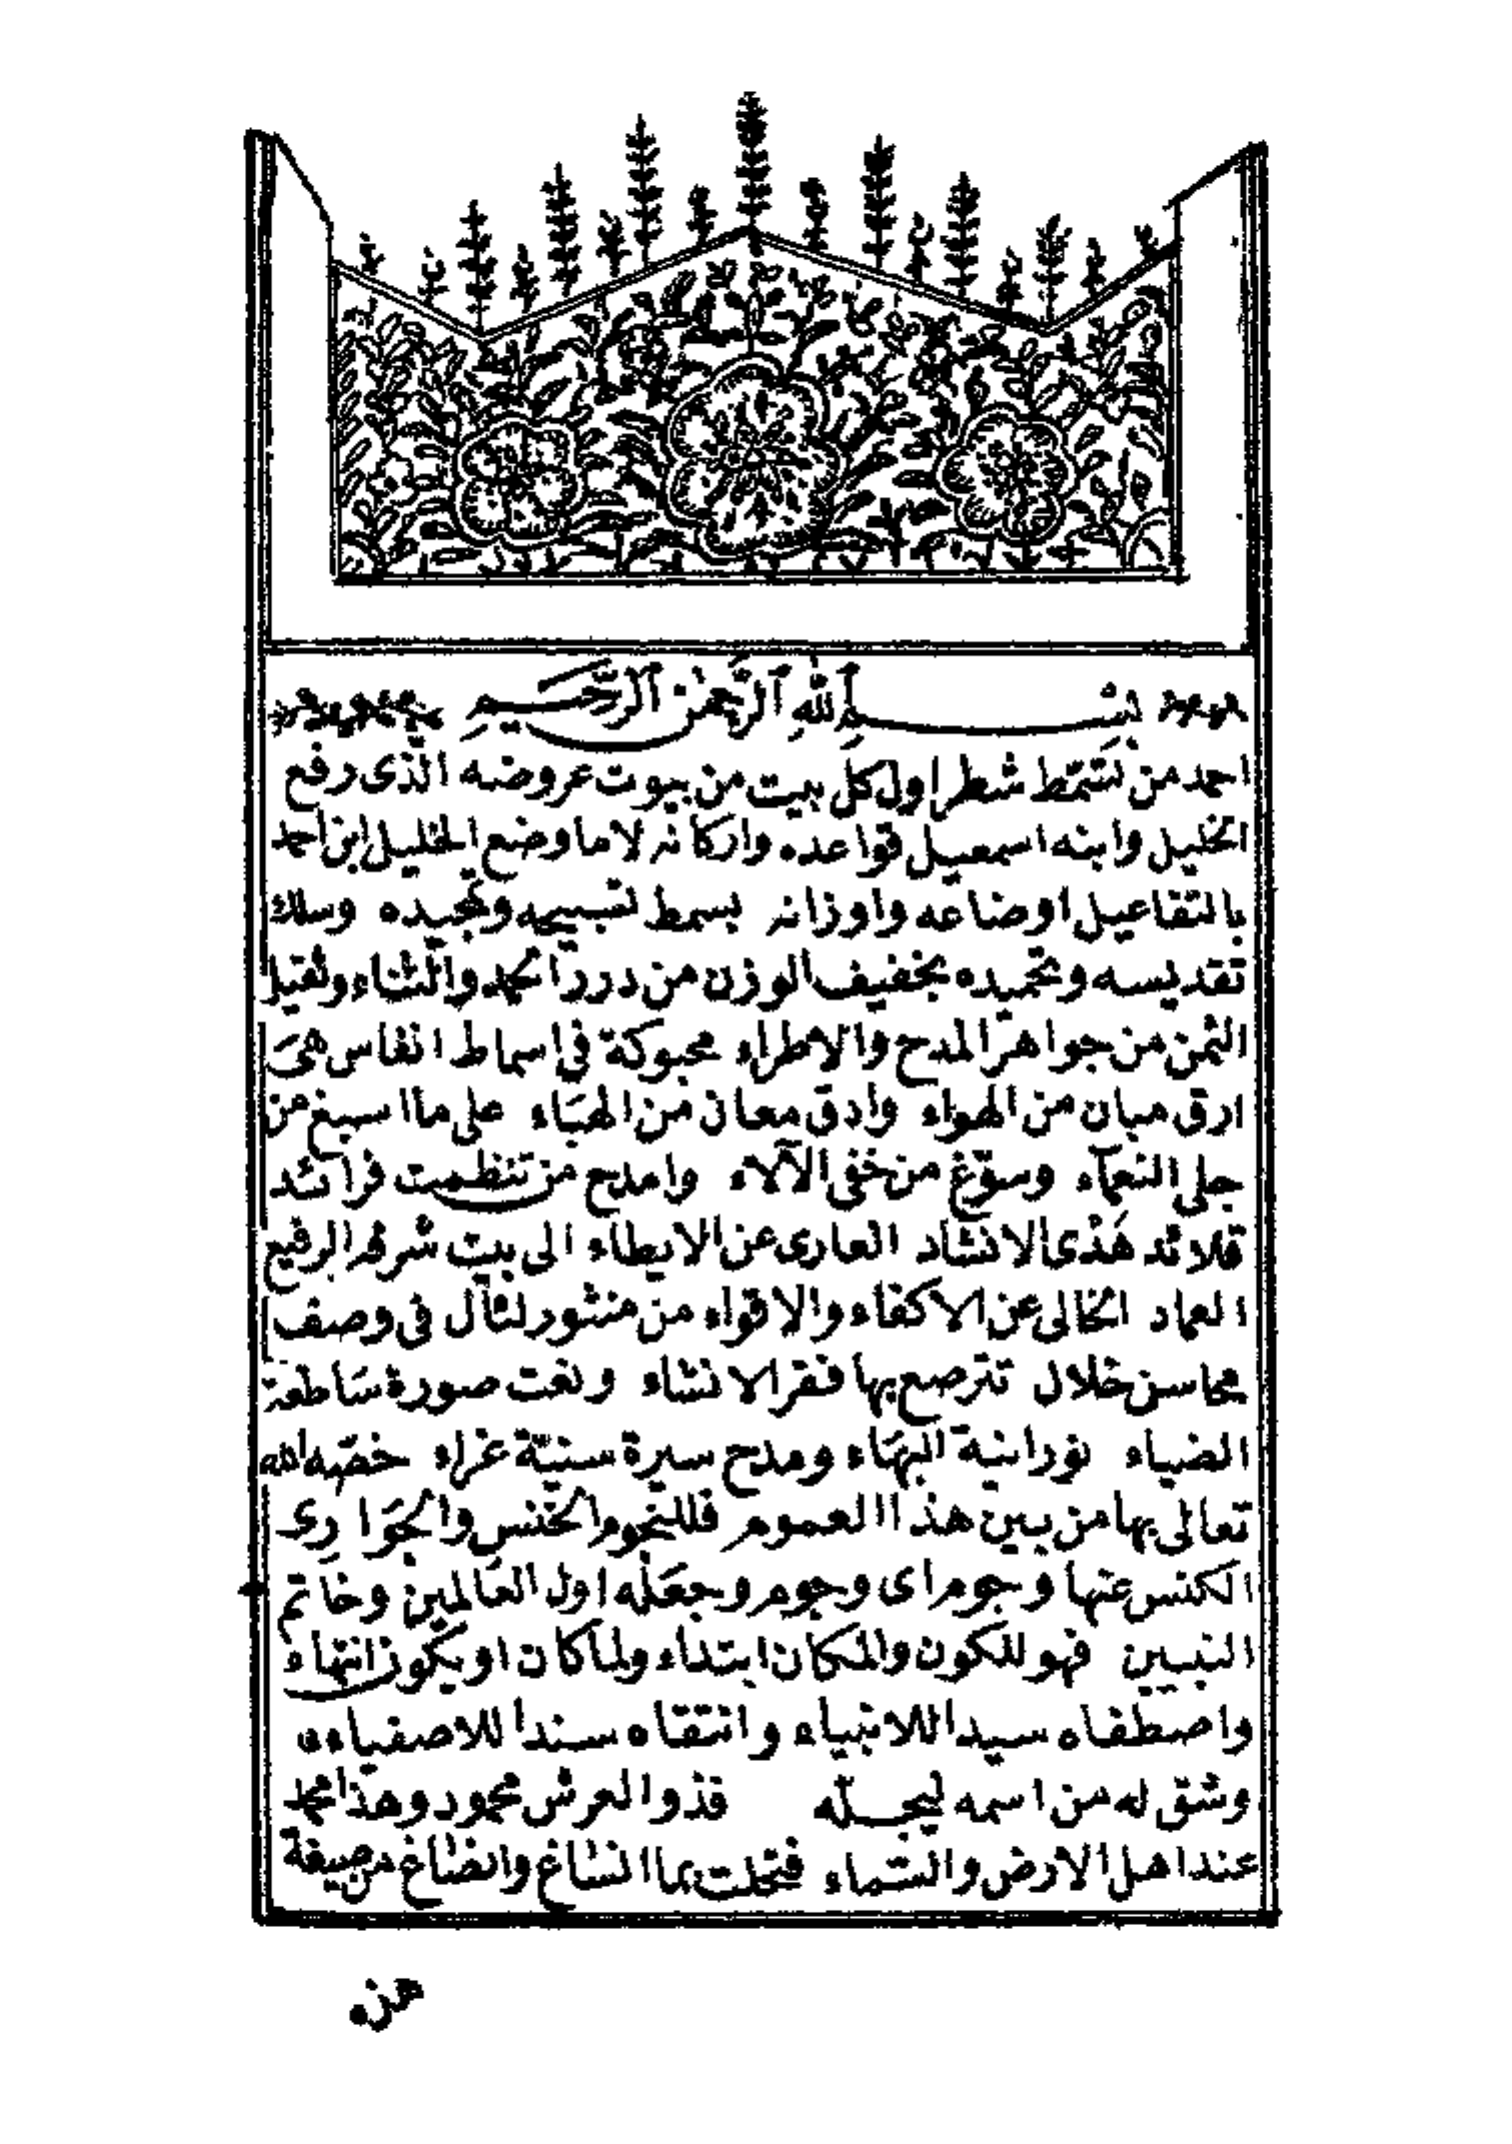 بسم الله الرحمن الرحيم
احمد من تسمّط شطر اول كلّ بيت من بيوت عروضه الّذى رفع
الخليل وابنه اسمعيل قواعده واركانه لاما وضع الخليل ابن احمد
بالتفاعيل اوضاعه واوزانه بسمط تسبيحه وتمجيده وسلك
تقديسه وتحميده بخفيف الوزن من درر الحمد والثناء وثقيل
الثمن من جواهر المدح والاطراء محبوكة فى اسماط انفاس هى
ارق مبان من الهواء وادق معان من الهباء على ما اسبغ من
جلى النعمآء وسوّغ من خفى الآلاء وامدح من تنظمت فرائد
قلائد هذى الانشاد العارى عن الايطاء الى بيت شرفه الرفيع
العماد الخالى عن الاكفاء والاقواء من منثور لئآل فى وصف
محاسن خلال تترصع بها فقر الانشاء ونعت صورة ساطعة
الضياء نورانية البهاء ومدح سيرة سنيّة غراء خصّه الله
تعالى بها من بين هذا العموم فللنجوم الخنس والجوارى
الكنس عنها وجوم اى وجوم وجعله اول العالمين وخاتم
النبيين فهو للكون والمكان ابتداء ولما كان او يكون انتهاء
واصطفاه سيدا للانبياء وانتقاه سندا للاصفياء
وشق له من اسمه ليجلّه فذو العرش محمود وهذا محمد
عند اهل الارض والسّماء فتحلت بما انساغ وانصاغ من صيغة
هذه